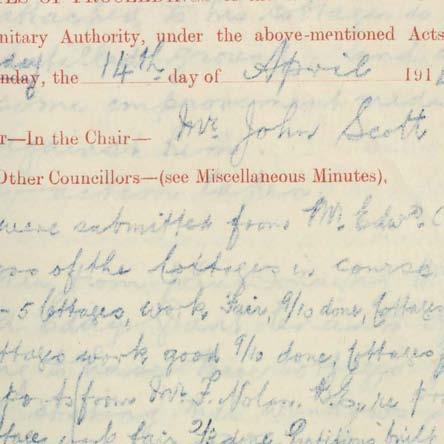 nitary Authority, under the above-mentioned Acts
nday, the 14th day of April 191
r—In the Chair— Mr. John Scott
Other Councillors—(see Miscellaneous Minutes),
were submitted from Mr. Edwd.
ess of the Cottages in course
- 5 Cottages, work, Fair, 9/10 done, Cottages
ttages work good 9/10 done, Cottages
ports from Mr. F. Nolan, re
work fair 2/3 done,